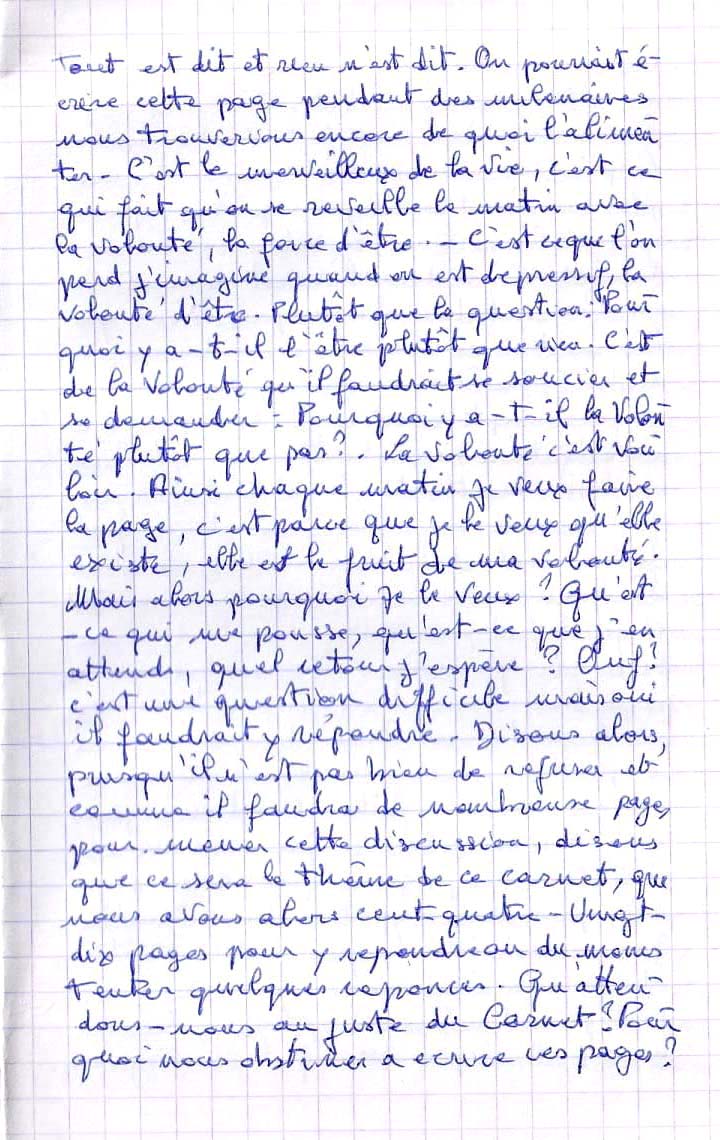 Tout est dit et rien n'est dit. On pourrait é-
crire cette page pendant des milenaires
nous trouverions encore de quoi l'alimen
ter - C'est le merveilleux de la vie, c'est ce
qui fait qu'on se reveille le matin avec
la volonté, la force d'être. - C'est ce que l'on
perd j'imagine quand on est depressif, la
volonté d'être. Plutôt que la question. Pour
quoi y a-t-il l'être plutôt que rien. C'est
de la Volonté qu'il faudrait se soucier et
se demander : Pourquoi y a-t-il la Volon
té plutôt que pas?. La volonté c'est vou
loir. Ainsi chaque matin je veux faire
la page, c'est parce que je le veux qu'elle
existe, elle est le fruit de ma volonté.
Mais alors pourquoi je le veux ? Qu'est
-ce qui me pousse, qu'est-ce que j'en
attends, quel retour j'espère ? Ouf!
c'est une question difficile mais oui
il faudrait y répondre. Disons alors,
puisqu'il n'est pas bien de refuser et
comme il faudra de nombreuse pages
pour mener cette discussion, disons
que ce sera le thème de ce carnet, que
nous avons alors cent-quatre-Vingt-
dix pages pour y repondre ou du moins
tenter quelques reponces. Qu'atten
dons-nous au juste du Carnet? Pour
quoi nous obstiner a ecrire ces pages?